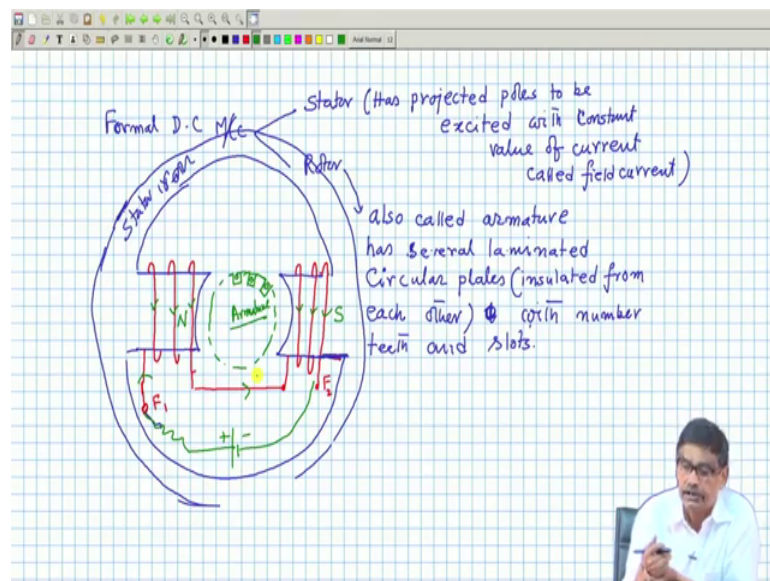 Axial Normal 12
Formal D.C M/c
Stator (Has projected poles to be
excited with Constant
value of current
called field current)
Rotor
Stator iron
also called armature
has several laminated
Circular plates (insulated from
each other) with number
teeth and slots.
Armature
N
S
F1
F2
+ -